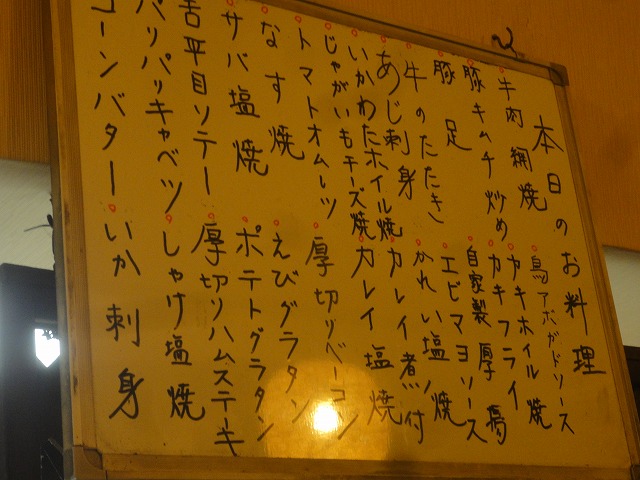 本日のお料理
牛肉網焼
豚キムチ炒め
豚足
牛のたたき
あじ刺身
いかわたホイル焼
じゃがいもチーズ焼
トマトオムレツ
なす焼
サバ塩焼
舌平目ソテー
パリパリキャベツ
コーンバター
鳥アボガドソース
カキホイル焼
カキフライ
自家製厚揚
エビマヨソース
かれい塩焼
カレイ煮付
カレイ塩焼
厚切りベーコン
えびグラタン
ポテトグラタン
厚切りハムステーキ
しゃけ塩焼
いか刺身